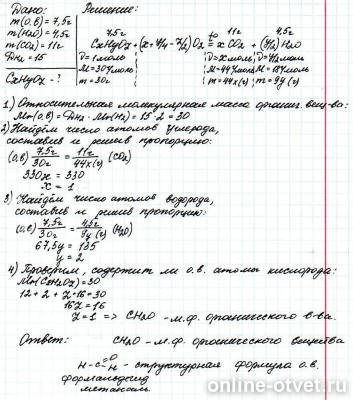 Дано: Решение:
m(о.в)=7,5г 7,5г to 11г 4,5г
m(H2O)=4,5г CxHyOz + (x+y/4-z/2)O2 = xCO2 + (y/2)H2O
m(CO2)=11г ν=1моль ν=xмоль ν=y/2моль
DH2=15 M=30г/моль M=44г/моль M=18г/моль
CxHyOz-? m=30г m=44x(г) m=9y(г)
1) Относительная молекулярная масса орган. вещ-ва:
Mr(о.в)=DH2·Mr(H2)=15·2=30
2) Найдём число атомов углерода,
составив и решив пропорцию:
(о.в) 7,5г/30г = 11г/44x(г) (CO2)
330x=330
x=1
3) Найдём число атомов водорода,
составив и решив пропорцию:
(о.в) 7,5г/30г = 4,5г/9y(г) (H2O)
67,5y=135
y=2
4) Проверим, содержит ли о.в. атомы кислорода:
Mr(CxHyOz)=30
12+2+z·16=30
16z=16
z=1 => CH2O - м.ф. органического в-ва.
Ответ: CH2O - м.ф. органического вещества
H-C=O
H - структурная формула о.в.
формальдегид
метаналь
online-otvet.ru